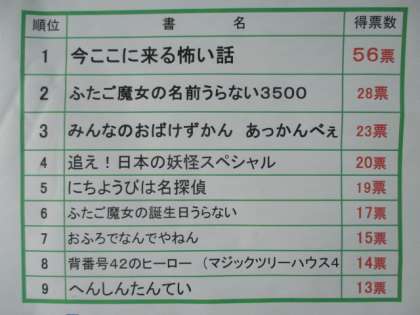 順位 書名 得票数
1 今ここに来る怖い話 56票
2 ふたご魔女の名前うらない3500 28票
3 みんなのおばけずかん あっかんべぇ 23票
4 追え!日本の妖怪スペシャル 20票
5 にちようびは名探偵 19票
6 ふたご魔女の誕生日うらない 17票
7 おふろでなんでやねん 15票
8 背番号42のヒーロー (マジックツリーハウス4 14票
9 へんしんたんてい 13票